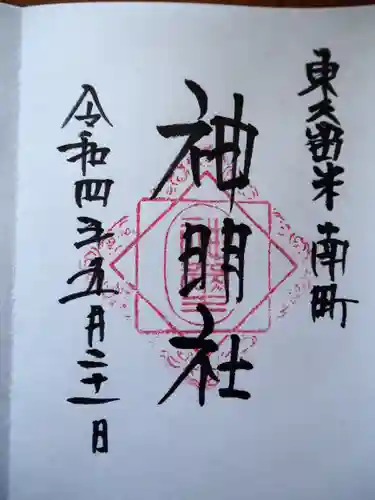 東大野米南町
神明社
令和四年五月二十一日